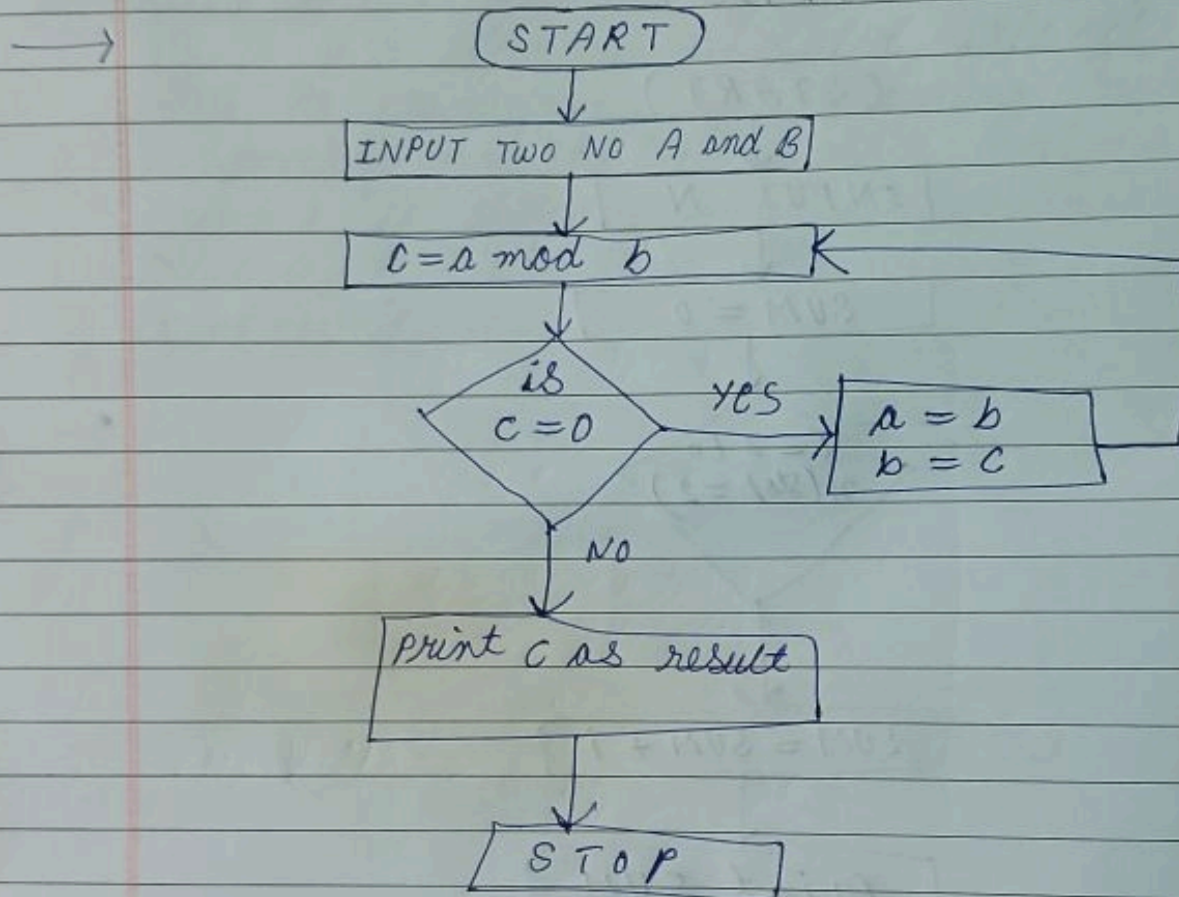 START
INPUT TWO NO A and B
C = a mod b
is
c = 0
YES
a = b
b = c
NO
print c as result
STOP